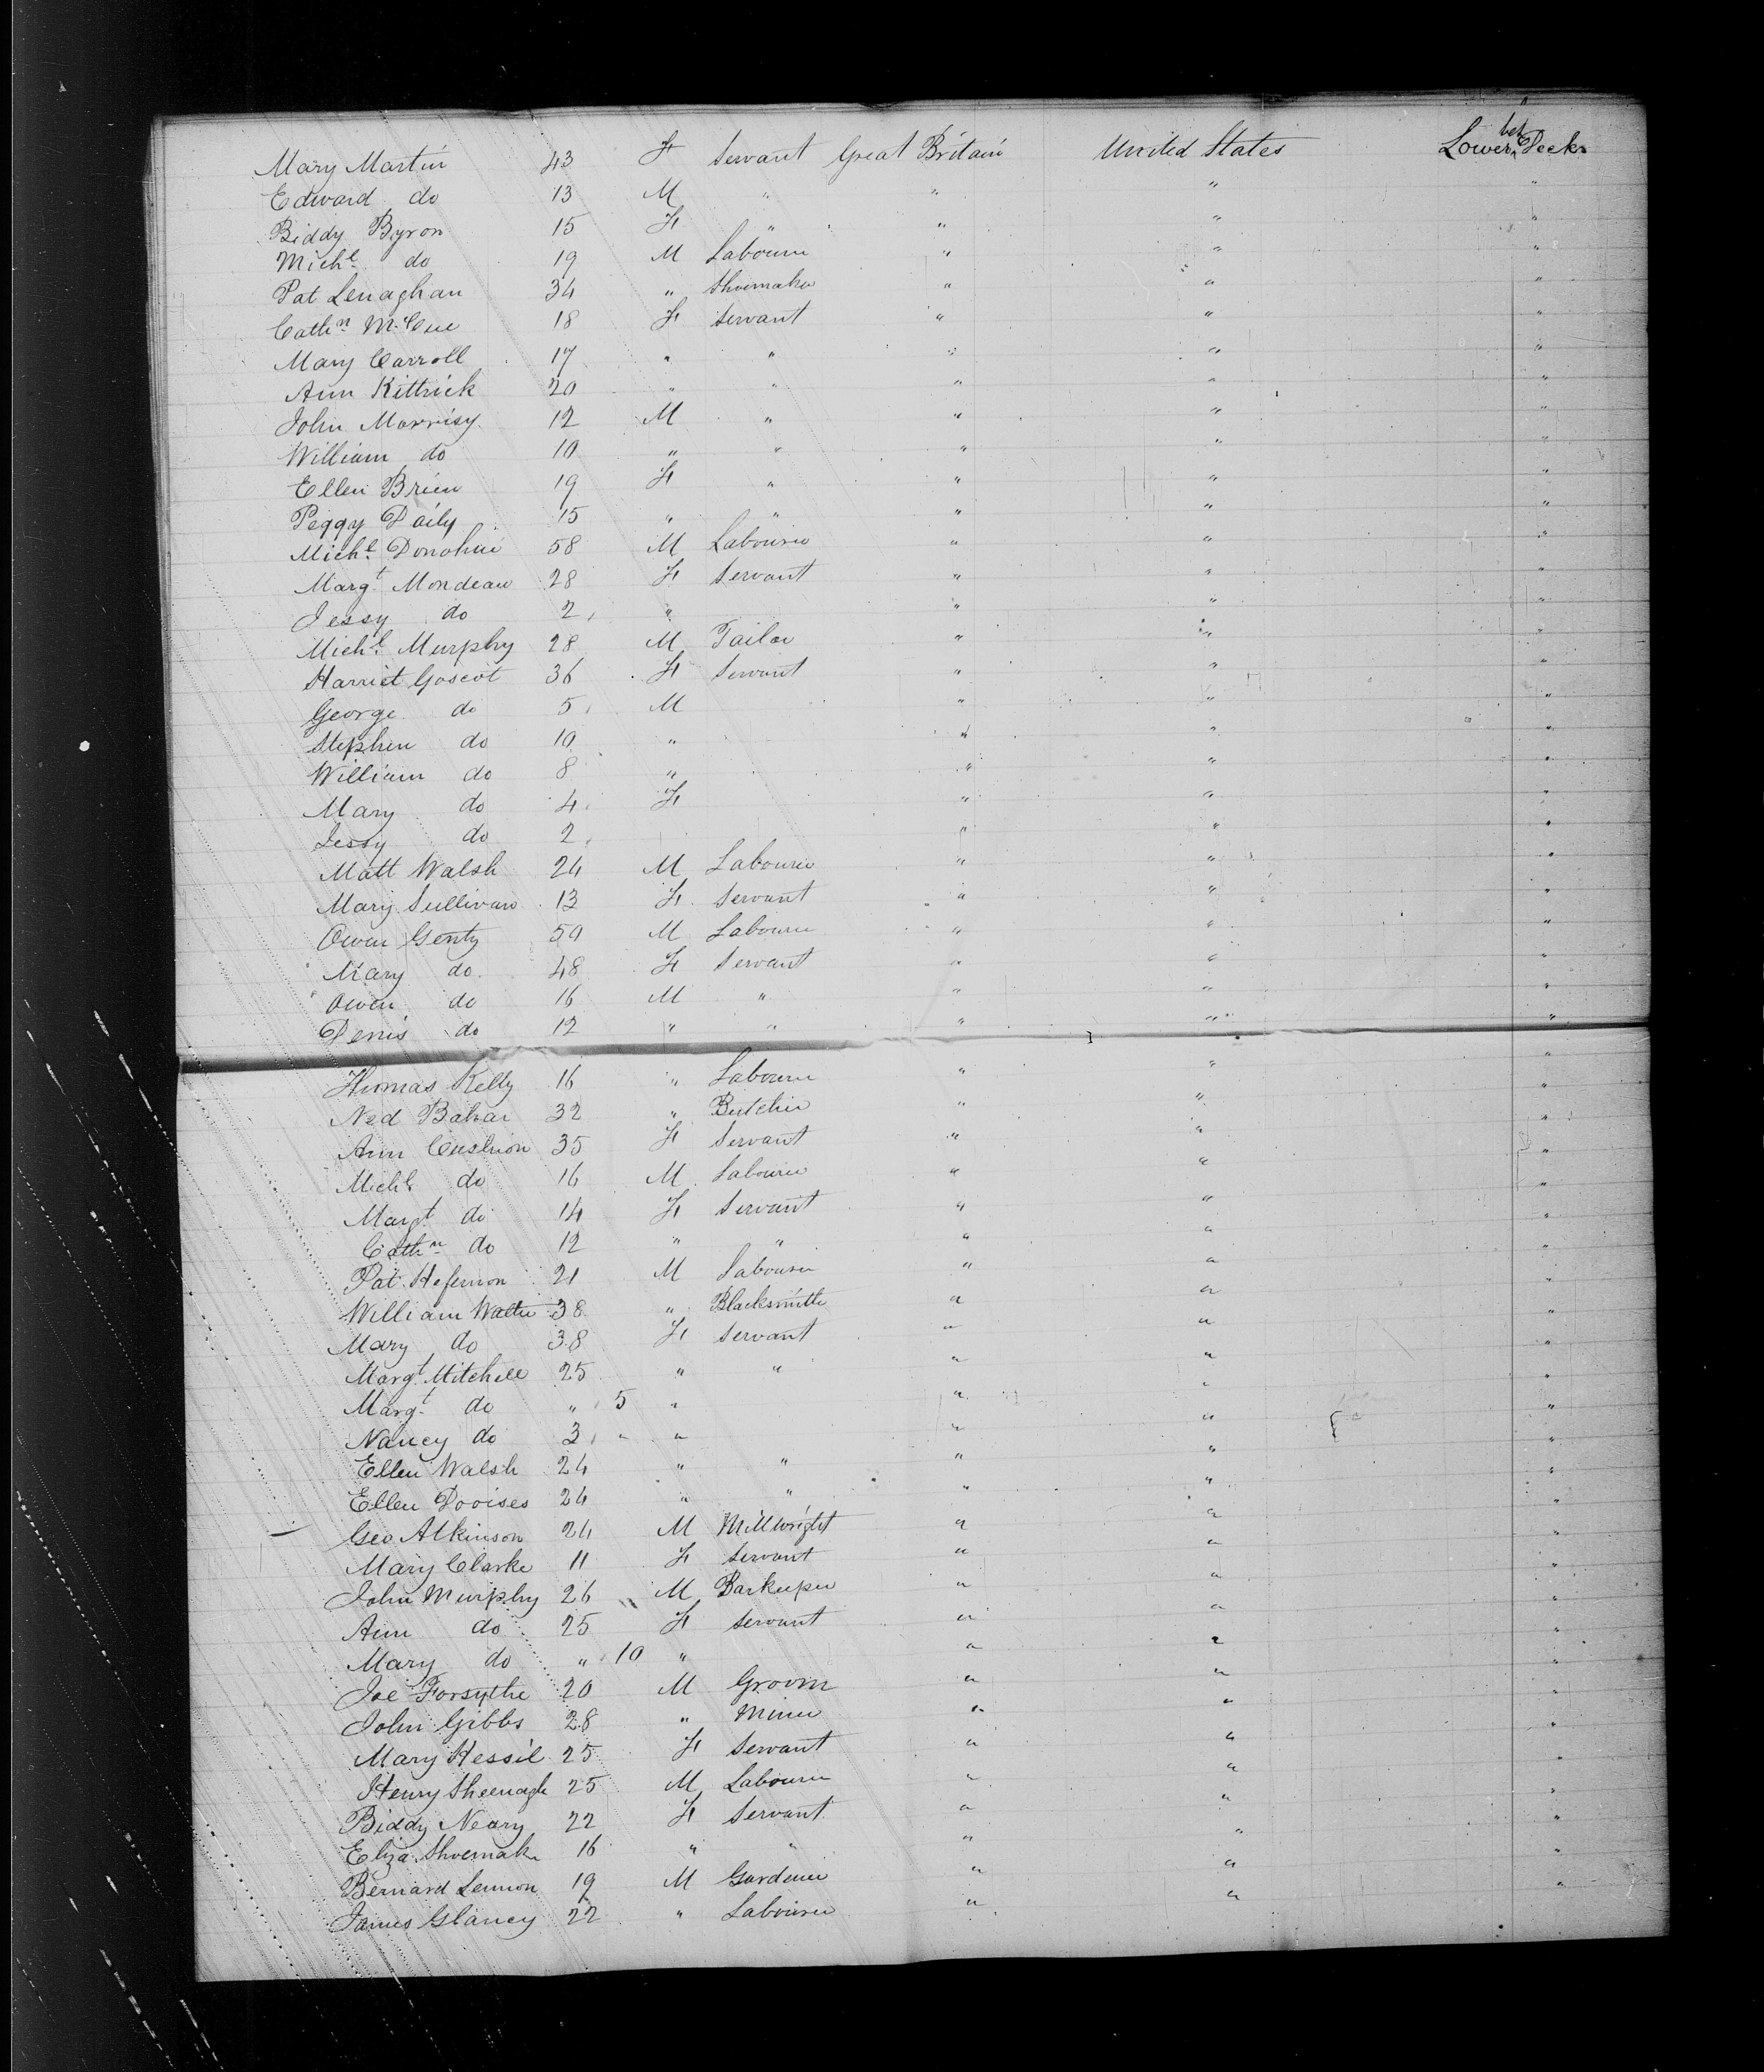 Mary Martin 43 F Servant Great Britain United States Lower bet Decks
Edward do 13 M " " " "
Biddy Byron 15 F " " " "
Michl do 19 M Labourer " " "
Pat Lenaghan 34 " Shoemaker " " "
Cathn McCue 18 F Servant " " "
Mary Carroll 17 " " " " "
Ann Kittrick 20 " " " " "
John Morrisy 12 M " " " "
William do 10 " " " " "
Ellen Brien 19 F " " " "
Peggy Daily 15 " " " " "
Michl Donohue 58 M Labourer " " "
Margt Mondeau 28 F Servant " " "
Jessy do 2 " " " "
Michl Murphy 28 M Tailor " " "
Harriet Goscot 36 F Servant " " "
George do 5 M " " "
Stephen do 10 " " " "
William do 8 " " " "
Mary do 4 F " " "
Jessy do 2 " " "
Matt Walsh 24 M Labourer " " "
Mary Sullivan 13 F Servant " " "
Owen Genty 50 M Labourer " " "
Mary do 48 F Servant " " "
Owen do 16 M " " " "
Denis do 12 " " " " "
Thomas Kelly 16 " Labourer " " "
Ned 32 " Butcher " " "
Ann Cushion 35 F Servant " " "
Michl do 16 M Labourer " " "
Margt do 14 F Servant " " "
Cathn do 12 " " " " "
Pat Hefernon 21 M Labourer " " "
William 38 " Blacksmith " " "
Mary do 38 F Servant " " "
Margt Mitchell 25 " " " " "
Margt do " 5 " " " "
Nancy do 3 " " " " "
Ellen Walsh 24 " " " " "
Ellen 24 " " " " "
Geo Atkinson 24 M Millwright " " "
Mary Clarke 11 F Servant " " "
John Murphy 26 M Barkeeper " " "
Ann do 25 F Servant " " "
Mary do " 10 " " " "
Joe Forsythe 20 M Groom " " "
John Gibbs 28 " Miner " " "
Mary Hessil 25 F Servant " " "
Henry 25 M Labourer " " "
Biddy Neary 22 F Servant " " "
Eliza Shoemake 16 " " " " "
Bernard Lennon 19 M Gardener " " "
James Glancy 22 " Labourer " "